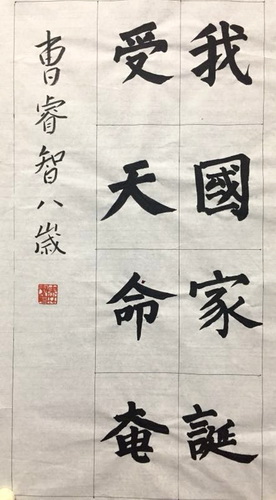 我國家誕
受天命奄
曹睿智八歲